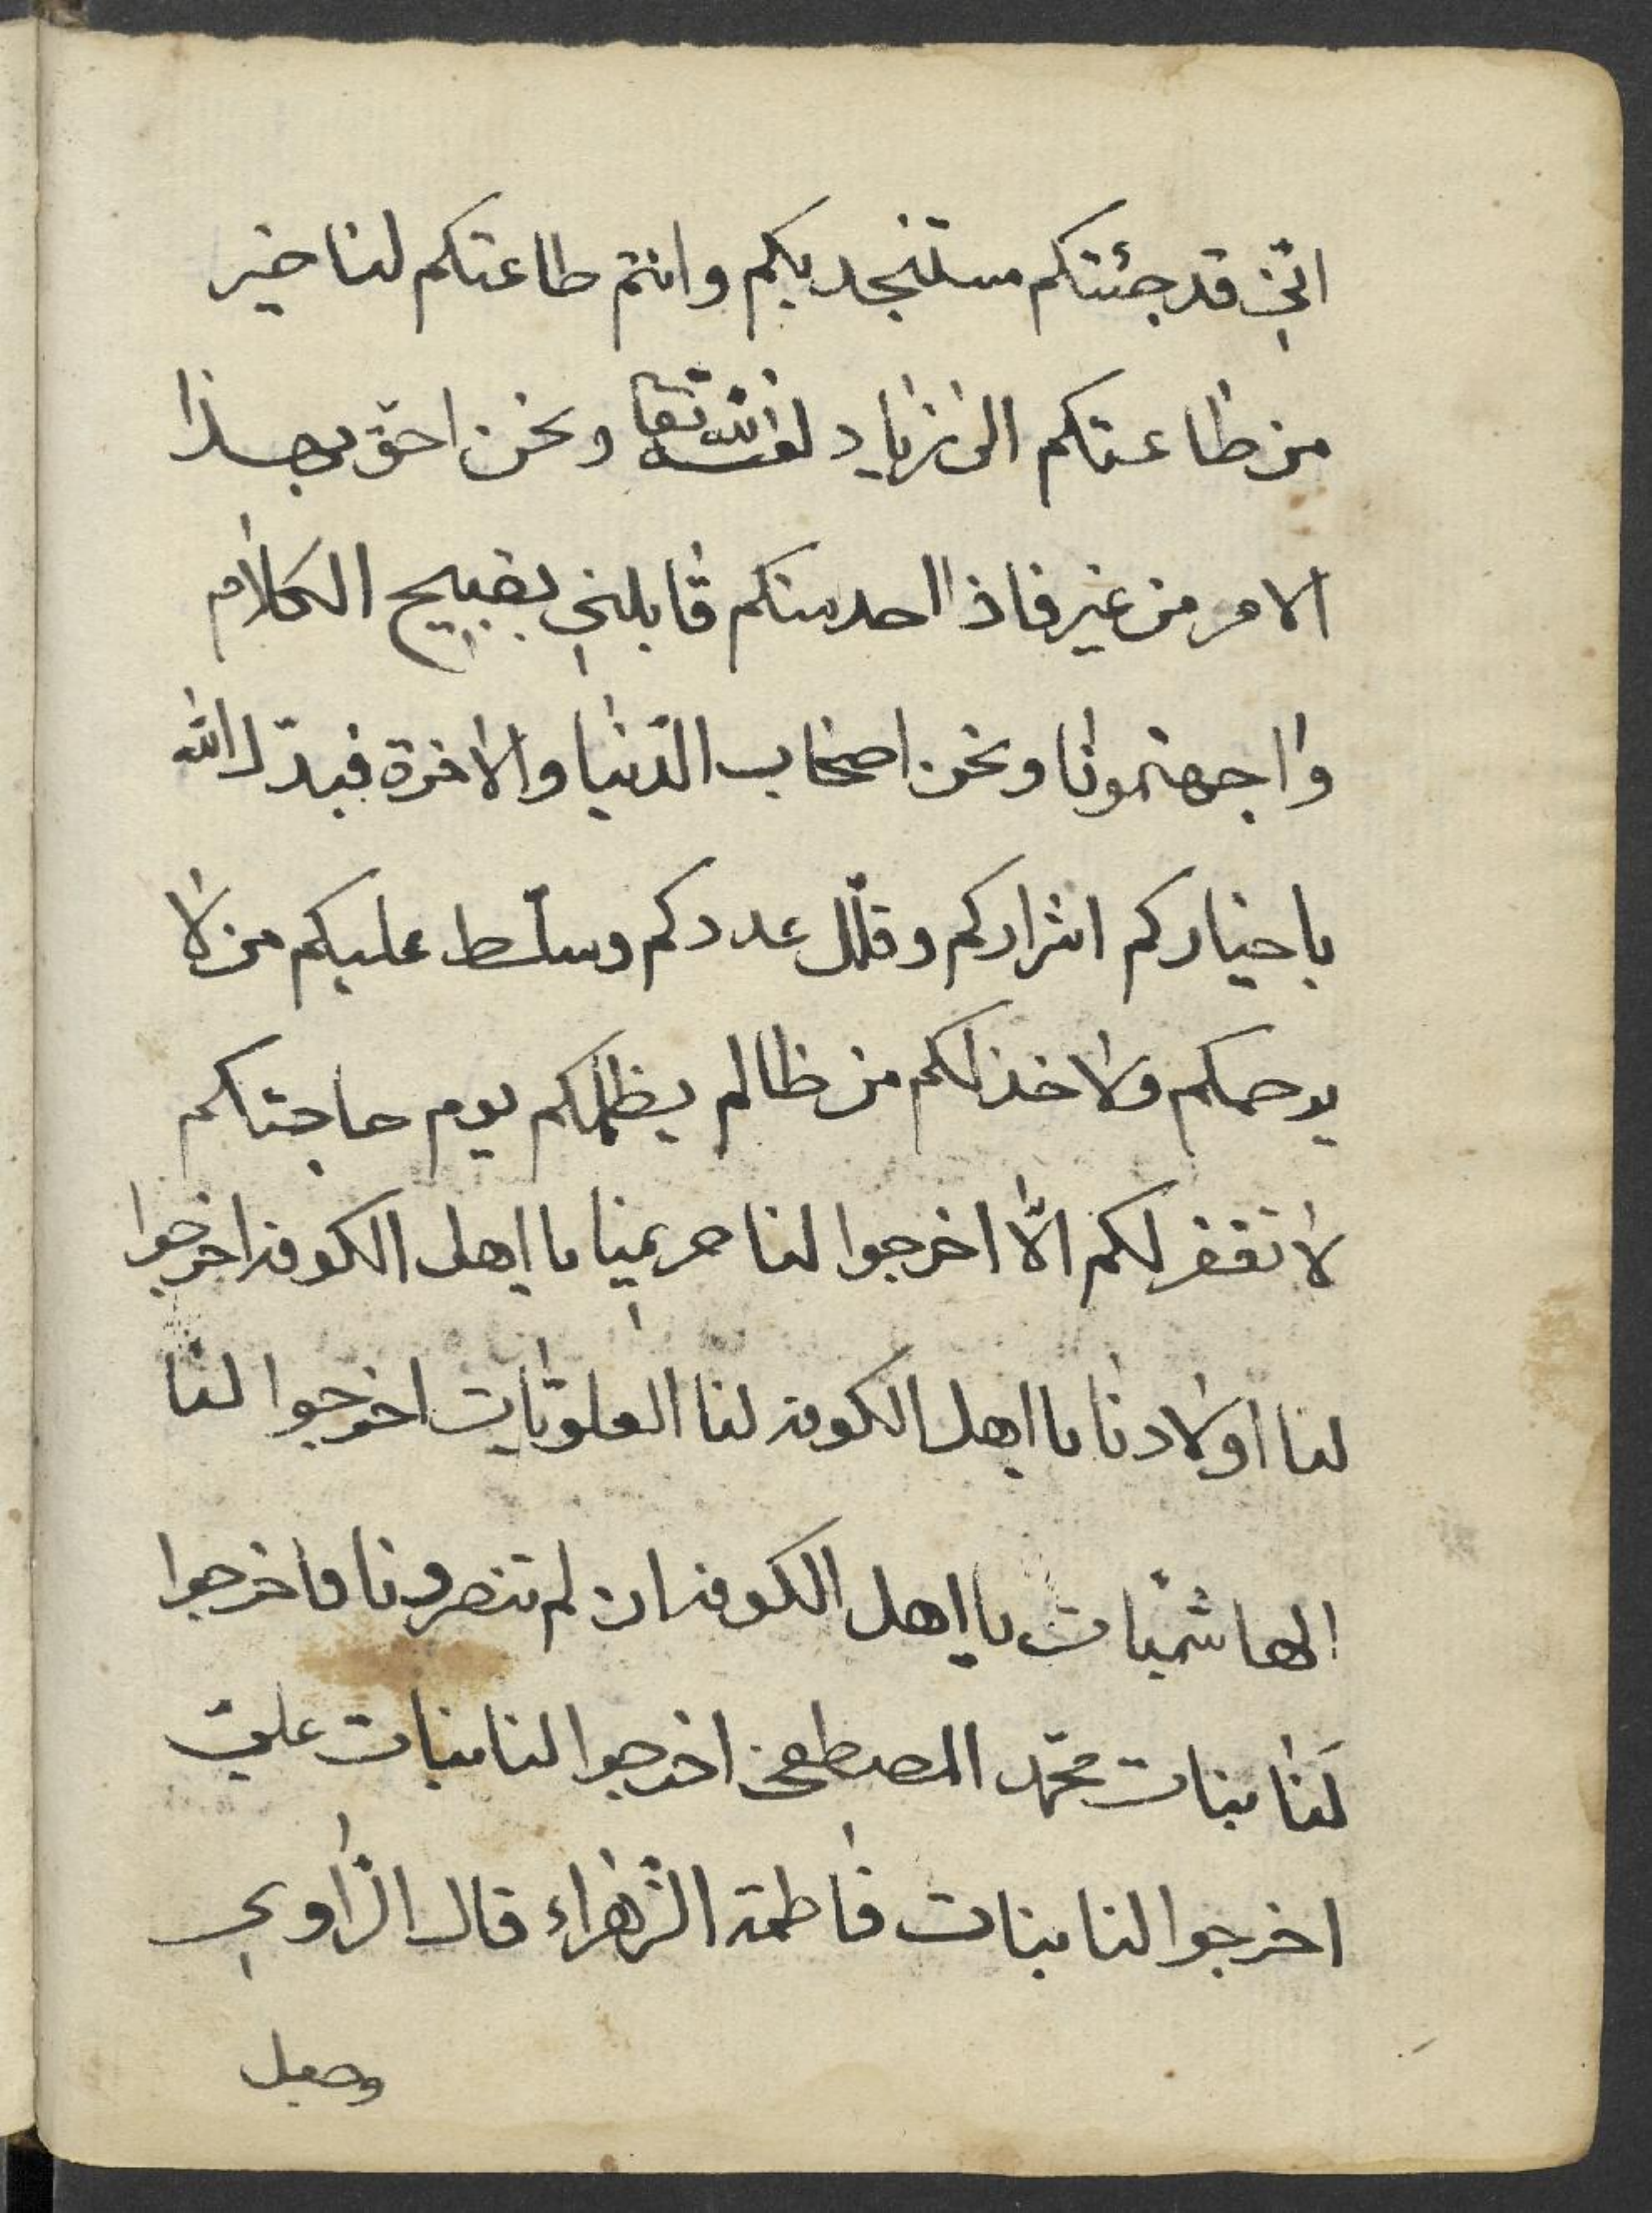 انّي قد جئتكم مستنجد بكم وانتم طاعتكم لنا خير
من طاعتكم الى زياد لعنه الله تعا ونحن احق بهذا
الامر من غير فاذا احد منكم قابلني بقبيح الكلام
واجهتمونا ونحن اصحاب الدّنيا والاخرة فبدّل الله
باخياركم اشراركم وقلّل عددكم وسلّط عليكم من لا
يرحمكم ولا خذلكم من ظالم يظلمكم يوم حاجتكم
لا تغفر لكم الّا اخرجوا لنا حريمنا يا اهل الكوفه اخرجوا
لنا اولادنا يا اهل الكوفه لنا العلويّات اخرجوا لنا
الهاشميّات يا اهل الكوفه ان لم تنصرونا فاخرجوا
لَنا بنات محمّد المصطفى اخرجوا لنا بنات عليّ
اخرجوا لنا بنات فاطمة الزّهراء قال الرّاوي
وجعل